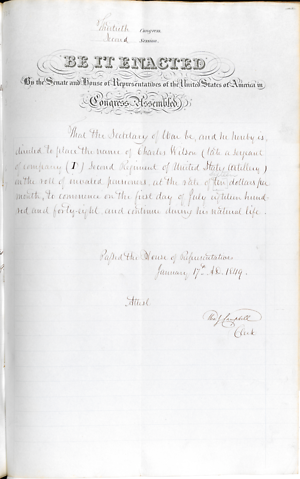 Thirtieth Congress
Second Session
BE IT ENACTED
By the Senate and House of Representatives of the United States of America in
Congress Assembled,
That the Secretary of War be, and he hereby is,
directed to place the name of Charles Wilson (late a sergeant
of company (I) Second Regiment of United States Artillery)
on the roll of invalid pensioners, at the rate of ten dollars per
month, to commence on the first day of July eighteen hund
red and forty-eight, and continue during his natural life.
Passed the House of Representatives
January 17th AD. 1849.
Attest.
Tho J Campbell
Clerk